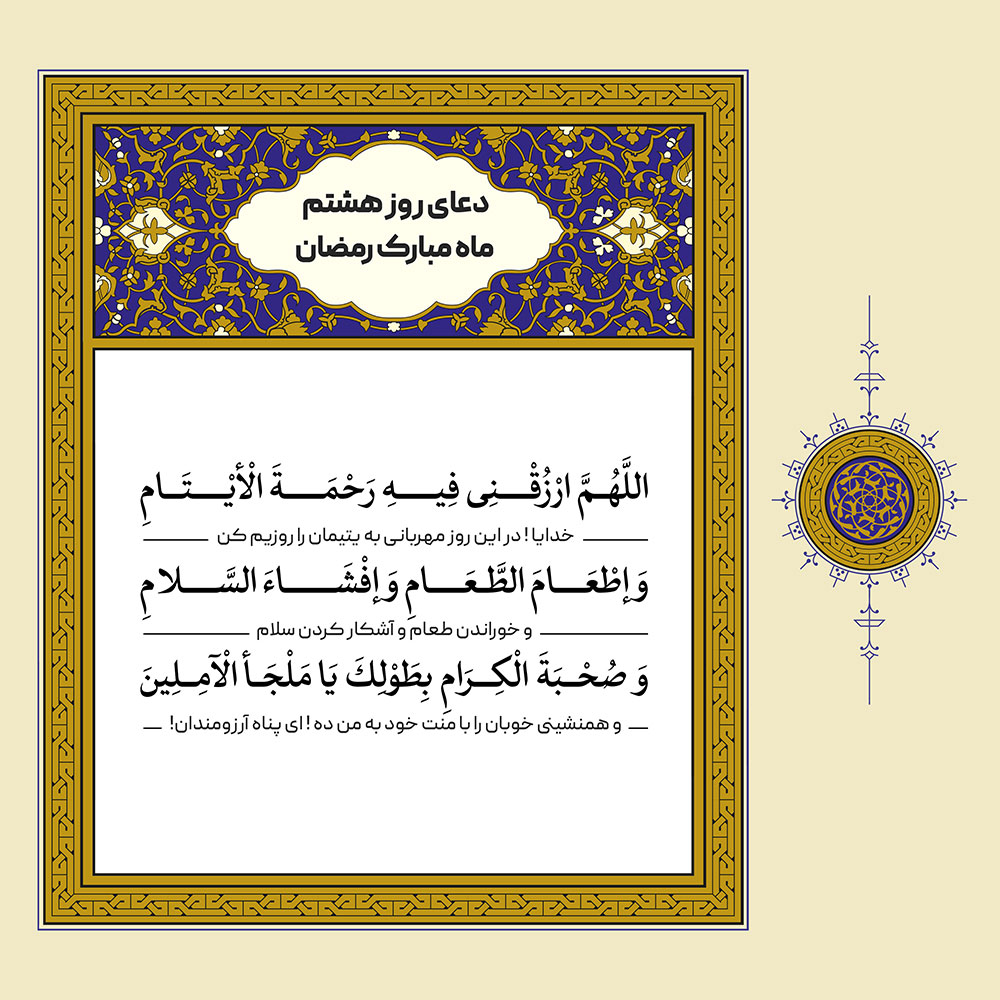 دعای روز هشتم
ماه مبارک رمضان
اللَّهُمَّ ارْزُقْنِی فِیهِ رَحْمَةَ الْأَیْتَامِ
خدایا ! در این روز مهربانی به یتیمان را روزیم کن
وَ إِطْعَامَ الطَّعَامِ وَ إِفْشَاءَ السَّلامِ
و خوراندن طعام و آشکار کردن سلام
وَ صُحْبَةَ الْکِرَامِ بِطَوْلِکَ یَا مَلْجَأَ الْآمِلِینَ
و همنشینی خوبان را با منت خود به من ده ! ای پناه آرزومندان!